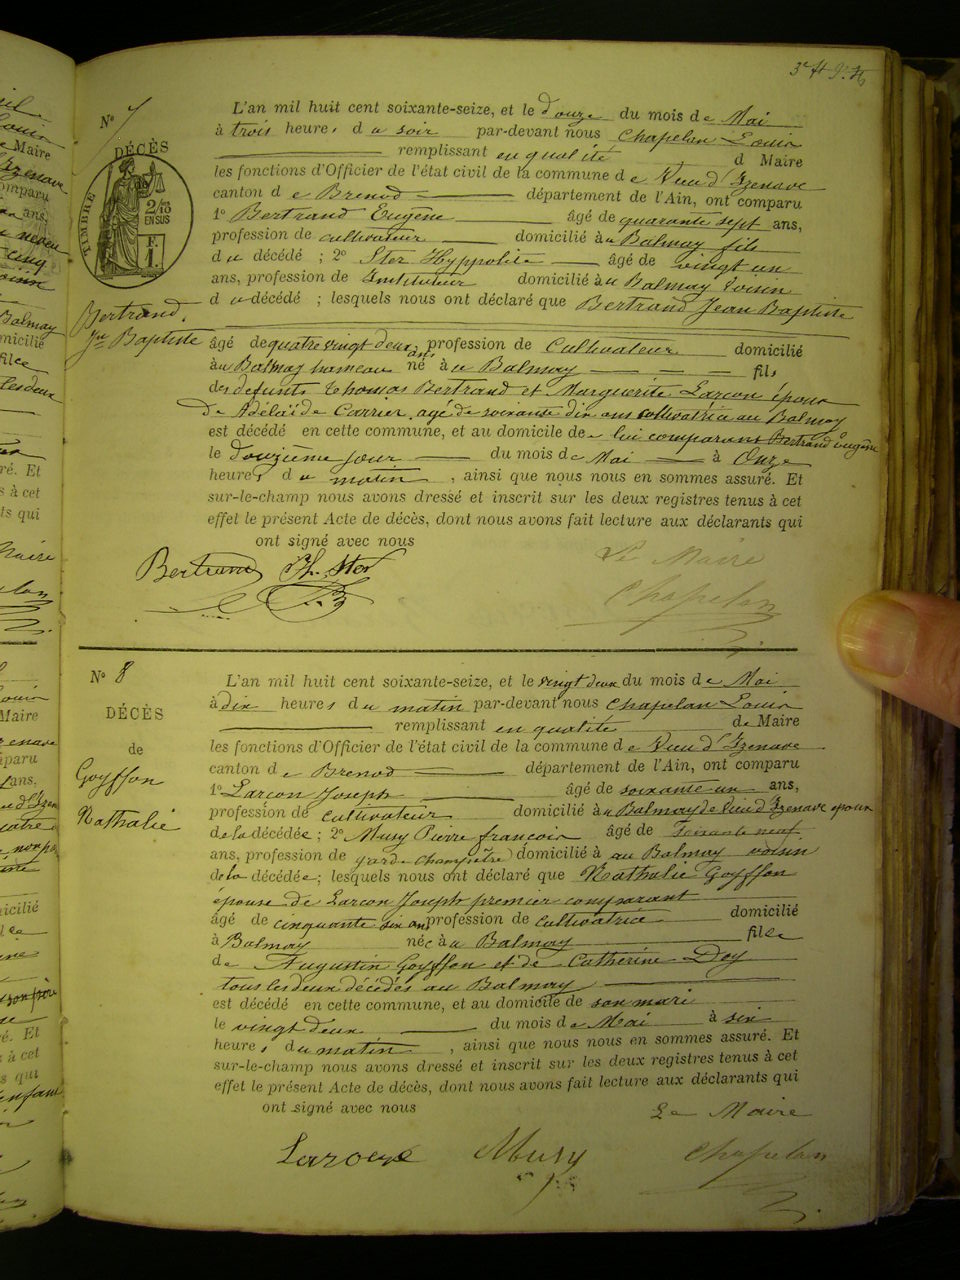 N° 7
DÉCÈS
TIMBRE
2/10
EN SUS
F.
1.
Bertrand
Jn Baptiste
L'an mil huit cent soixante-seize, et le douze du mois de Mai
à trois heures du soir par-devant nous Chapelan Louis
remplissant en qualité d Maire
les fonctions d'Officier de l'état civil de la commune de Vieu d'Izenave
canton de Brenod département de l'Ain, ont comparu
1° Bertrand Eugène âgé de quarante sept ans,
profession de cultivateur domicilié au Balmay fils
du décédé ; 2° Ster Hyppolite âgé de vingt un
ans, profession de Instituteur domicilié au Balmay voisin
du décédé ; lesquels nous ont déclaré que Bertrand Jean Baptiste
âgé de quatre vingt deux ans profession de Cultivateur domicilié
au Balmay hameau né à au Balmay fils
des defunts Thomas Bertrand et Marguerite Larçon époux
De Adélaïde Carrier, agé de soixante dix ans cultivatrice au Balmay
est décédé en cette commune, et au domicile de lui comparant Bertrand Eugène
le Douzième jour du mois de Mai à Onze
heures du matin, ainsi que nous nous en sommes assuré. Et
sur-le-champ nous avons dressé et inscrit sur les deux registres tenus à cet
effet le présent Acte de décès, dont nous avons fait lecture aux déclarants qui
ont signé avec nous
Bertrand H. Ster
Le Maire
Chapelan
N° 8
DÉCÈS
de
Goyffon
Nathalie
L'an mil huit cent soixante-seize, et le vingt deux du mois de Mai
à dix heures du matin par-devant nous Chapelan Louis
remplissant en qualité de Maire
les fonctions d'Officier de l'état civil de la commune de Vieu d'Izenave
canton de Brenod département de l'Ain, ont comparu
1° Larçon Joseph âgé de soixante un ans,
profession de cultivateur domicilié au Balmay de Vieu d'Izenave époux
de la décédée ; 2° Musy Pierre françois âgé de neuf
ans, profession de garde champêtre domicilié à au Balmay voisin
de la décédée ; lesquels nous ont déclaré que Nathalie Goyffon
épouse de Larçon Joseph premier comparant
âgé de cinquante six ans profession de cultivatrice domicilié
à Balmay née à au Balmay fille
de Augustin Goyffon et de Catherine Doy
tous les deux décédés au Balmay
est décédé en cette commune, et au domicile de son mari
le vingt deux du mois de Mai à six
heures du matin, ainsi que nous nous en sommes assuré. Et
sur-le-champ nous avons dressé et inscrit sur les deux registres tenus à cet
effet le présent Acte de décès, dont nous avons fait lecture aux déclarants qui
ont signé avec nous
Le Maire
Musy Chapelan